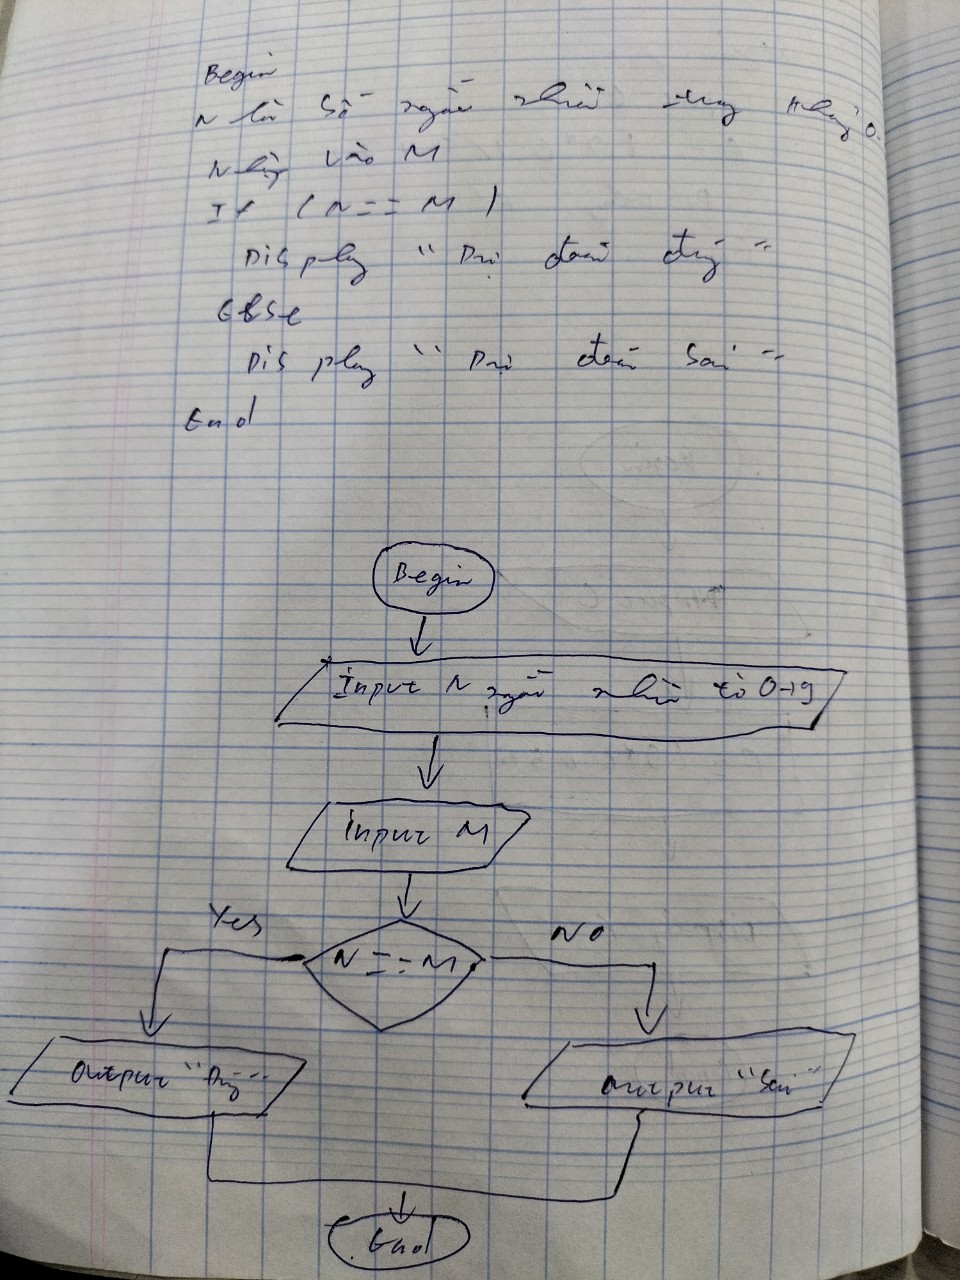 Begin
N là số ngẫu nhiên trong khoảng 0
Nhập vào M
If (N == M)
Display "Dự đoán đúng"
Else
Display "Dự đoán sai"
End
Begin
Input N ngẫu nhiên từ 0→9
Input M
Yes
NO
N == M
Output "Đúng"
Output "Sai"
End